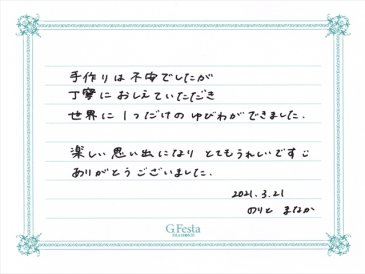 手作りは不安でしたが
丁寧におしえていただき
世界に1つだけのゆびわができました.
楽しい思い出になり とてもうれしいです
ありがとうございました.
2021.3.21
のりと まなか
G.Festa